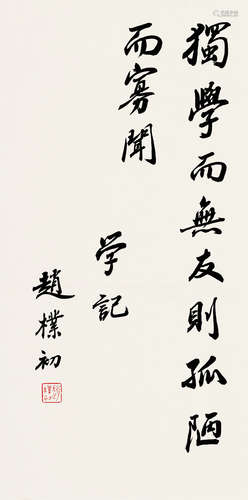 獨學而無友則孤陋
而寡聞
学記
趙樸初